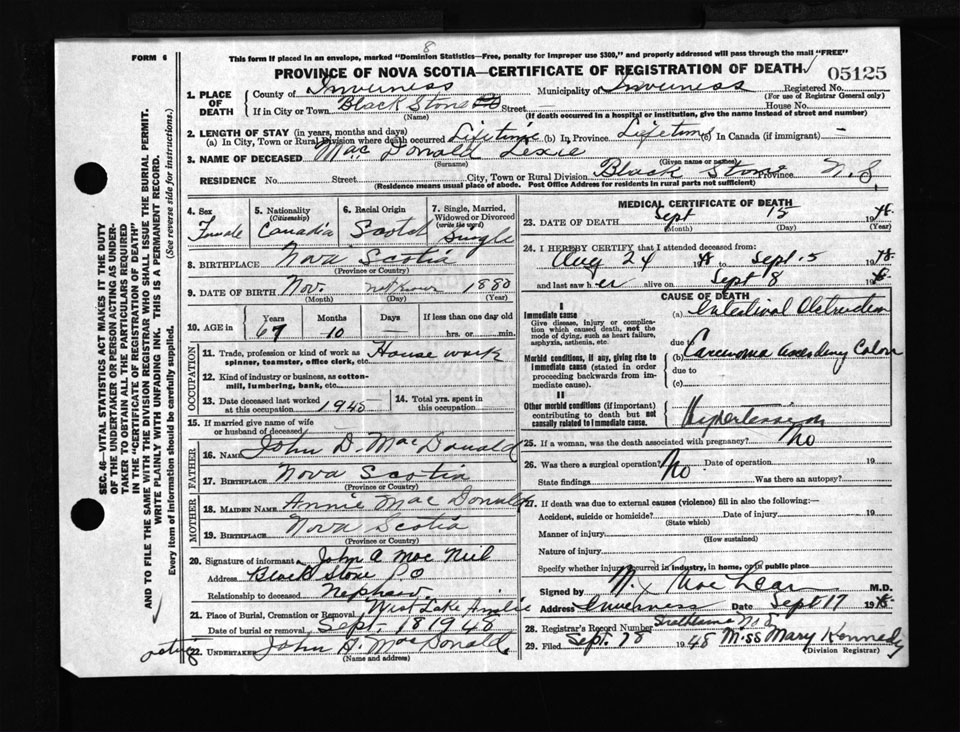 8
FORM 6
This form if placed in an envelope, marked "Dominion Statistics—Free, penalty for improper use $300," and properly addressed will pass through the mail "FREE"
PROVINCE OF NOVA SCOTIA—CERTIFICATE OF REGISTRATION OF DEATH
05125
1. PLACE OF DEATH
County of Inverness Municipality of Inverness Registered No.
(For use of Registrar General only)
If in City or Town Black Stone Street — House No.
(Name) (If death occurred in a hospital or institution, give the name instead of street and number)
2. LENGTH OF STAY (in years, months and days)
(a) In City, Town or Rural Division where death occurred Lifetime (b) In Province Lifetime (c) In Canada (if immigrant) —
3. NAME OF DECEASED Mac Donald Lexie
(Surname) (Given name or names)
RESIDENCE No. Street City, Town or Rural Division Black Stone Province N.S.
(Residence means usual place of abode. Post Office Address for residents in rural parts not sufficient)
4. Sex Female
5. Nationality (Citizenship) Canadia
6. Racial Origin Scotch
7. Single, Married, Widowed or Divorced (write the word) Single
8. BIRTHPLACE Nova Scotia
(Province or Country)
9. DATE OF BIRTH Nov. not known 1880
(Month) (Day) (Year)
10. AGE in Years 67 Months 10 Days — If less than one day old hrs. or min.
OCCUPATION
11. Trade, profession or kind of work as spinner, teamster, office clerk, etc. House work
12. Kind of industry or business, as cotton-mill, lumbering, bank, etc.
13. Date deceased last worked at this occupation 1945
14. Total yrs. spent in this occupation
15. If married give name of wife or husband of deceased
FATHER
16. NAME John D. Mac Donald
17. BIRTHPLACE Nova Scotia
(Province or Country)
MOTHER
18. MAIDEN NAME Annie Mac Donald
19. BIRTHPLACE Nova Scotia
(Province or Country)
20. Signature of informant John A Mac Neil
Address Black Stone P.O
Relationship to deceased Nephew
21. Place of Burial, Cremation or Removal West Lake Ainslie
Date of burial or removal Sept. 18 1948
acting
22. UNDERTAKER John D. Mac Donald
(Name and address)
MEDICAL CERTIFICATE OF DEATH
23. DATE OF DEATH Sept 15 1948
(Month) (Day) (Year)
24. I HEREBY CERTIFY that I attended deceased from:
Aug 24 1948 to Sept. 15 1948
and last saw her alive on Sept 8 1948
CAUSE OF DEATH
I
Immediate cause
Give disease, injury or complication which caused death, not the mode of dying, such as heart failure, asphyxia, asthenia, etc.
(a) Intestinal Obstruction
due to
Morbid conditions, if any, giving rise to immediate cause (stated in order proceeding backwards from immediate cause).
(b) Carcinoma Ascending Colon
due to
(c)
II
Other morbid conditions (if important) contributing to death but not causally related to immediate cause.
Hypertension
25. If a woman, was the death associated with pregnancy? No
26. Was there a surgical operation? No. Date of operation 19
State findings Was there an autopsy?
27. If death was due to external causes (violence) fill in also the following:—
Accident, suicide or homicide? Date of injury 19
(State which)
Manner of injury
(How sustained)
Nature of injury
Specify whether injury occurred in industry, in home, or in public place
Signed by N. Mac Lean M.D.
Address Inverness Date Sept 17 1948
28. Registrar's Record Number
Strathlorne N.S.
29. Filed Sept. 1948 Miss Mary Kennedy
(Division Registrar)
SEC. 46—VITAL STATISTICS ACT MAKES IT THE DUTY
OF THE UNDERTAKER OR PERSON ACTING AS UNDER-
TAKER TO OBTAIN ALL THE PARTICULARS REQUIRED
IN THE "CERTIFICATE OF REGISTRATION OF DEATH"
AND TO FILE THE SAME WITH THE DIVISION REGISTRAR WHO SHALL ISSUE THE BURIAL PERMIT.
WRITE PLAINLY WITH UNFADING INK. THIS IS A PERMANENT RECORD.
Every item of information should be carefully supplied. (See reverse side for instructions.)